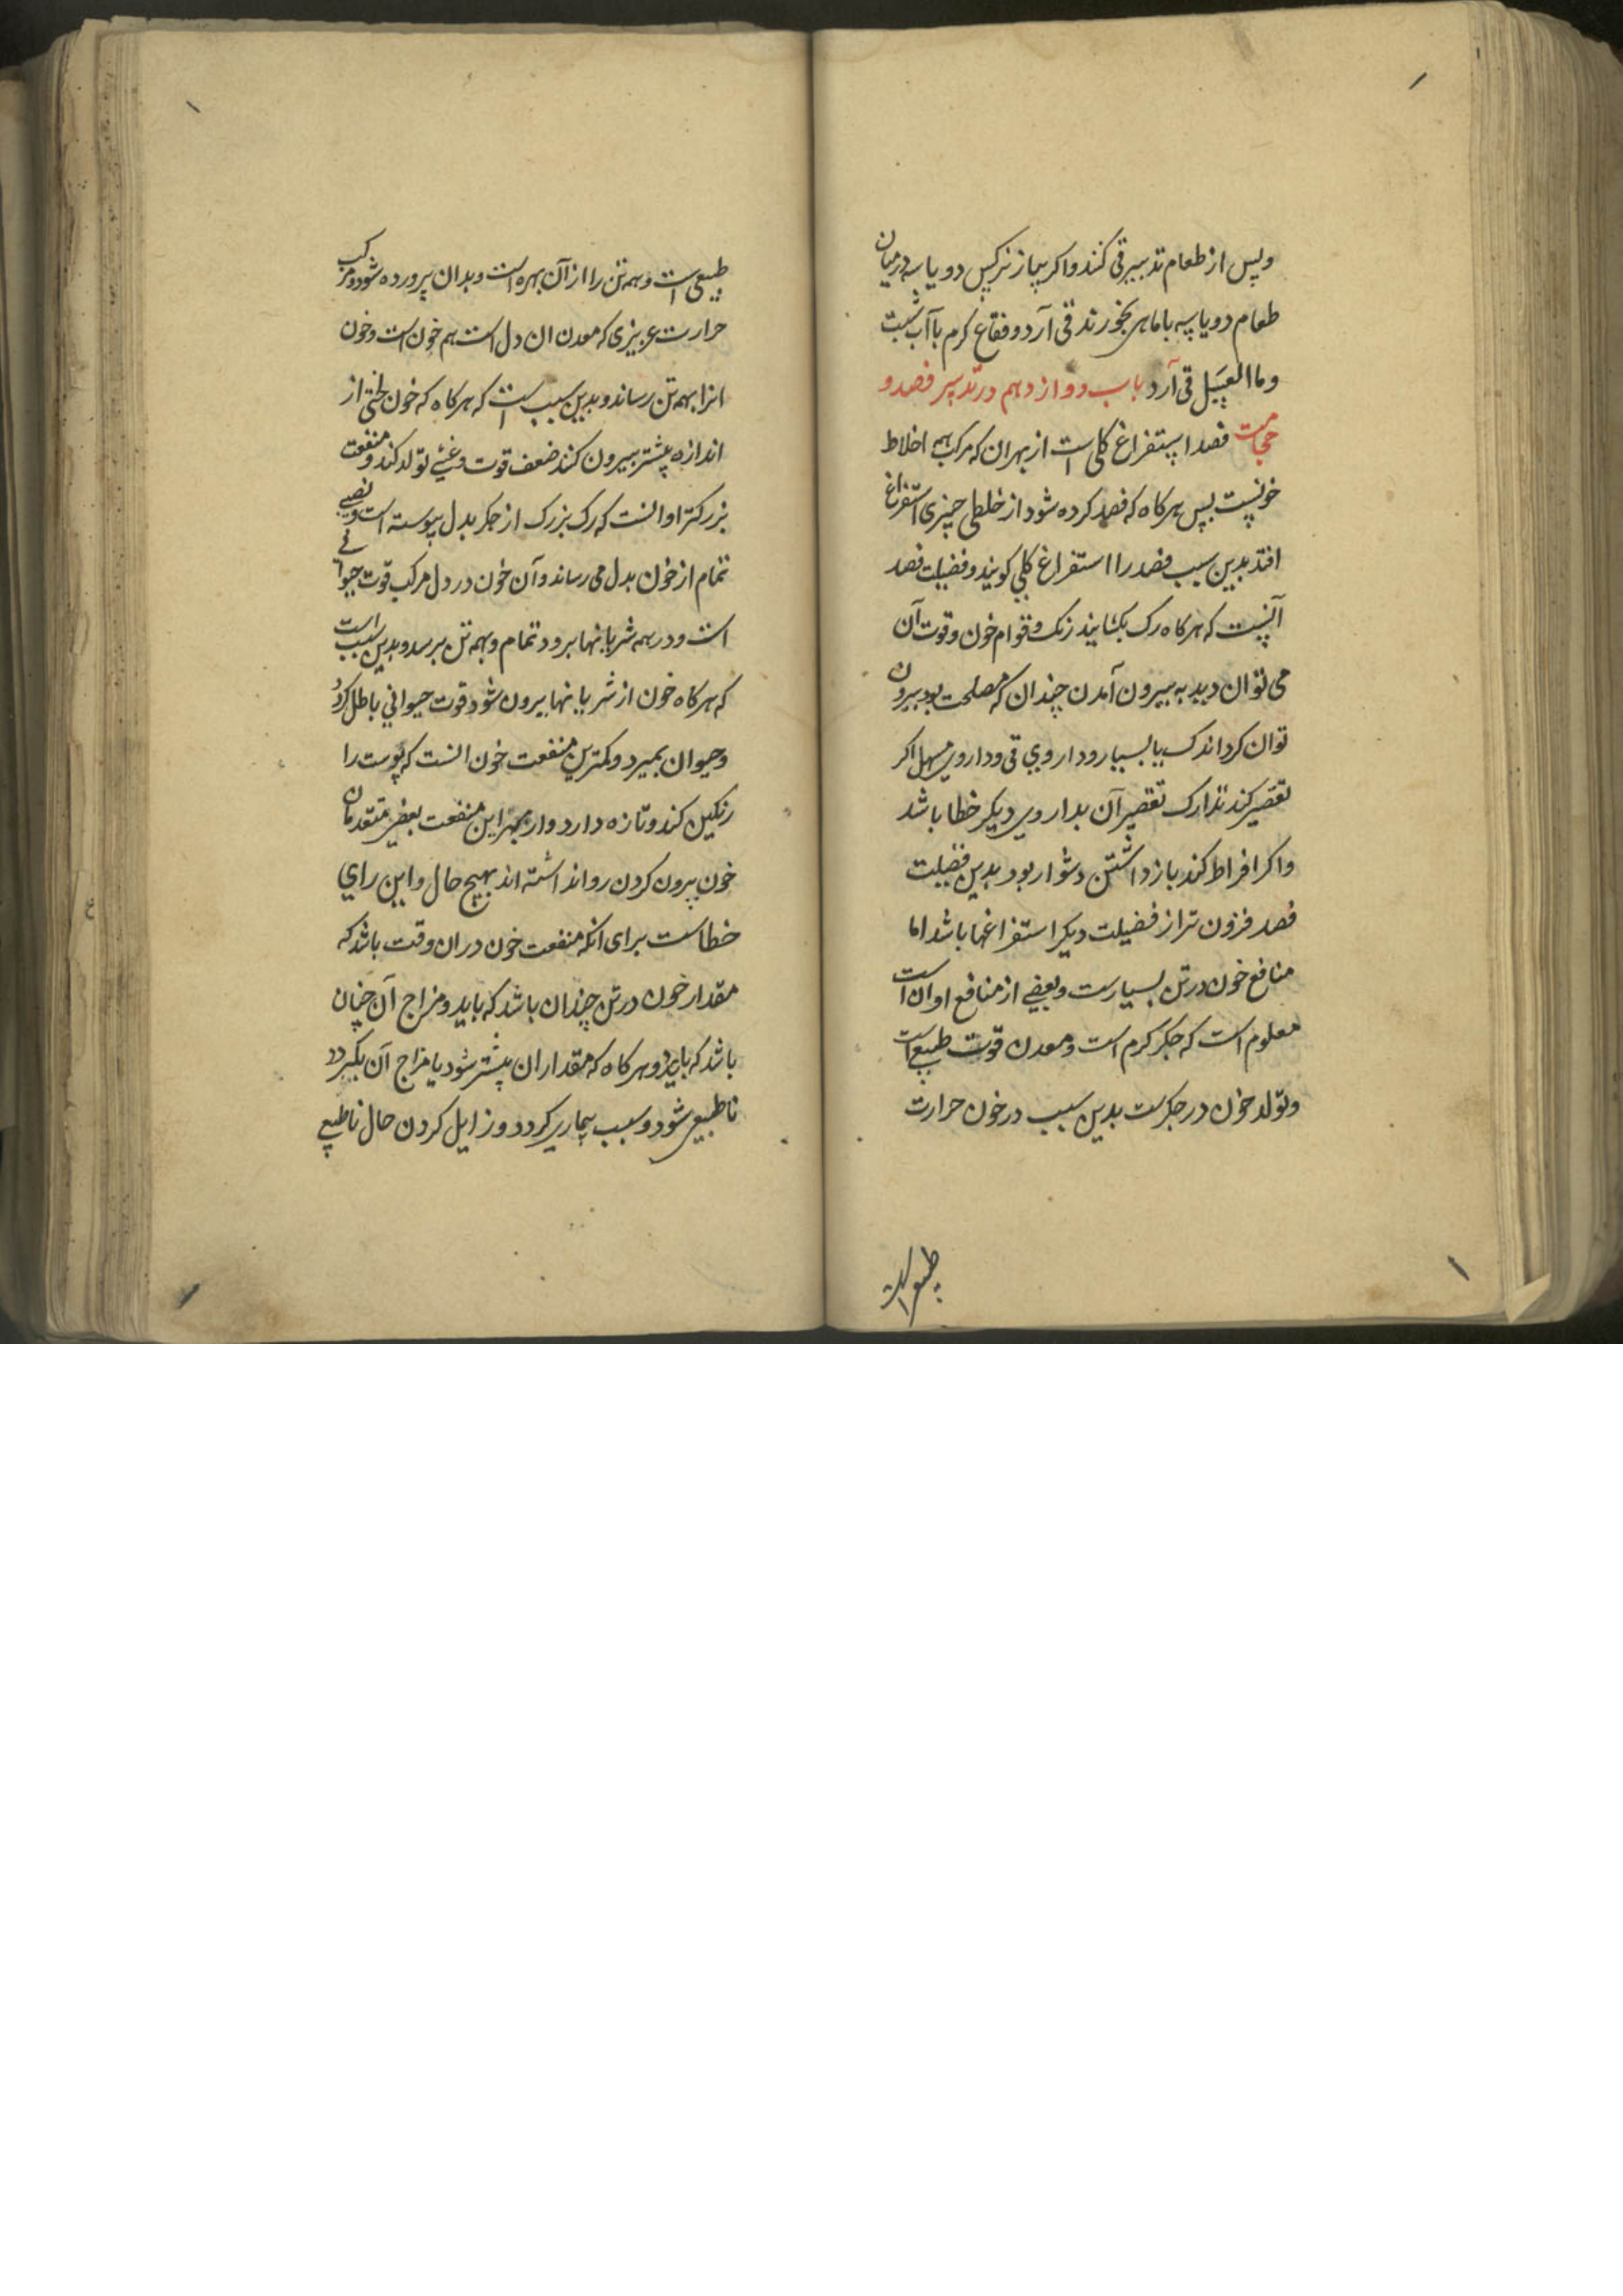 وپس از طعام تدبیر قی کنند واکر پیاز نرکس دو یا سه درمیان
طعام دو یا سه با ماهی بخورند قی آرد وفقاع کرم با آب شبت
وماالعسل قی آرد باب دوازدهم در تدبیر فصد و
حجامت فصد استفراغ کلی است از بهر ان که مرکب همه اخلاط
خونست پس هرکاه که فصد کرده شود از خلطی چیزی استفراغ
افتد بدین سبب فصد را استفراغ کلی کویند وفضیلت فصد
آنست که هرکاه رک بکشایند رنک وقوام خون وقوت آن
می توان دید به بیرون آمدن چندان که مصلحت بود بیرون
توان کرد اندک یا بسیار وداروی قی وداروی مسهل اکر
تقصیر کند تدارک تقصیر آن بداروی دیکر خطا باشد
واکر افراط کند باز داشتن دشوار بود بدین فضیلت
فصد فزون تر از فضیلت دیکر استفراغها باشد اما
منافع خون در تن بسیارست وبعضی از منافع او ان است
معلوم است که جکر کرم است ومعدن قوت طبیعی است
وتولد خون در جکرست بدین سبب در خون حرارت
طبیعی است
طبیعی است وهمه تن را از آن بهره است وبدان پرورده شود ومرکب
حرارت عزیزی که معدن ان دل است هم خون است وخون
انرا بهمه تن رساند وبدین سبب است که هرکاه که خون لختی از
اندازه بیشتر بیرون کنند ضعف قوت وغشی تولد کند ومنفعت
بزرکتر او انست که رک بزرک از جکر بدل پیوسته است ونصیبی
تمام از خون بدل می رساند وآن خون در دل مرکب قوت حیوانی
است ودر همه شریانها برود تمام وبهمه تن برسد وبدین سبب است
که هرکاه خون از شریانها بیرون شود قوت حیوانی باطل کردد
وحیوان بمیرد وکمترین منفعت خون انست که پوست را
رنکین کند وتازه دارد واز بهر این منفعت بعضی متقدمان
خون بیرون کردن روا نداشته اند بهیچ حال واین رای
خطاست برای انکه منفعت خون در ان وقت باشد که
مقدار خون در تن چندان باشد که باید ومزاج آن چنان
باشد که باید وهرکاه که مقدار ان بیشتر شود یا مزاج آن بکردد
ناطبیعی شود وسبب بیماری کردد وزایل کردن حال ناطبیعی